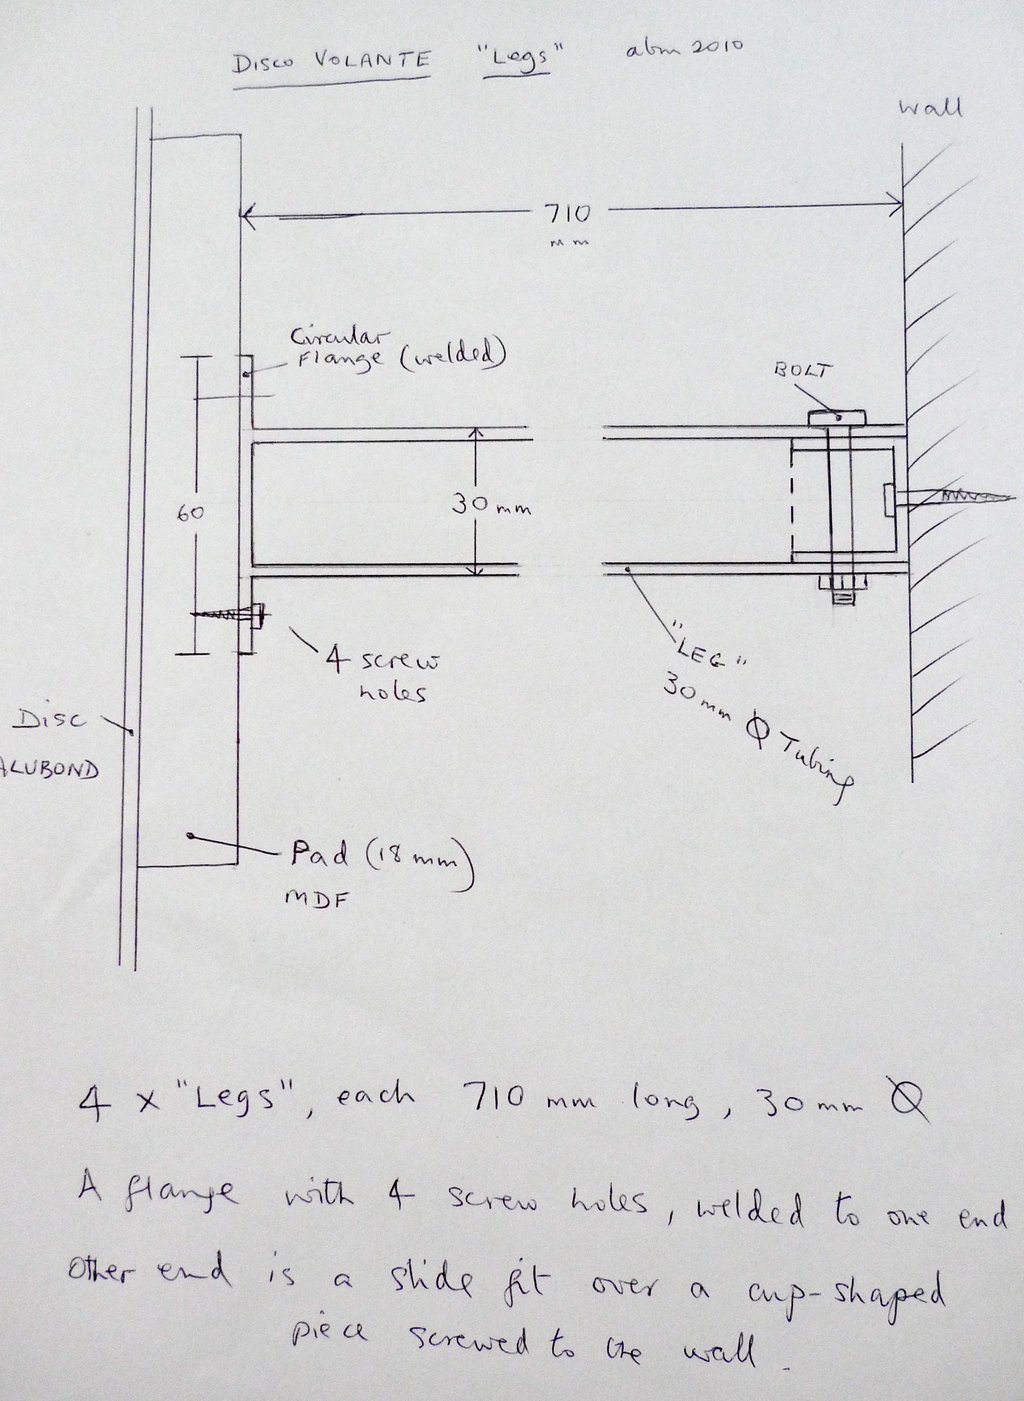 DISCO VOLANTE "Legs" abm 2010
Wall
710
mm
Circular
Flange (welded)
BOLT
60
30mm
"LEG"
30mm Φ Tubing
4 screw
holes
Disc
ALUBOND
Pad (18mm)
MDF
4 x "Legs", each 710 mm long, 30mm Φ
A flange with 4 screw holes, welded to one end
Other end is a slide fit over a cup-shaped
piece screwed to the wall.